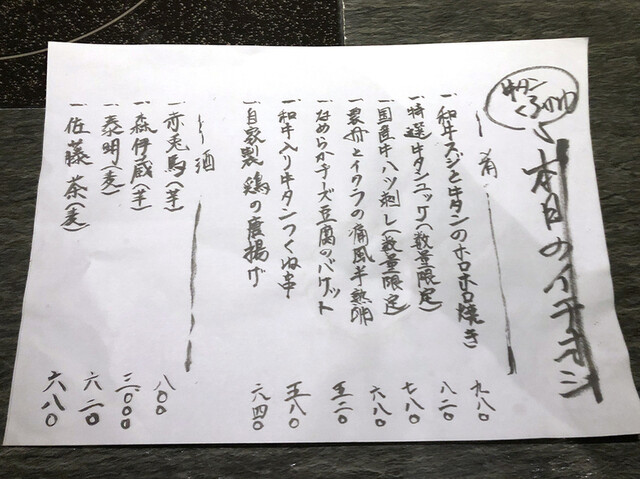 牛タン
本日のイチオシ
肴
一、和牛スジと牛タンのホロホロ焼き 九八〇
一、特選牛タンユッケ(数量限定) 八二〇
一、国産牛ハツ刺し(数量限定) 七八〇
一、雲丹とイクラの痛風半熟卵 六八〇
一、なめらかチーズ豆腐のバゲット 五二〇
一、和牛入り牛タンつくね串 五八〇
一、自家製 鶏の唐揚げ 六四〇
酒
一、赤兎馬(芋) 八〇〇
一、森伊蔵(芋) 三、〇〇〇
一、泰明(麦) 六二〇
一、佐藤 茶(麦) 六八〇